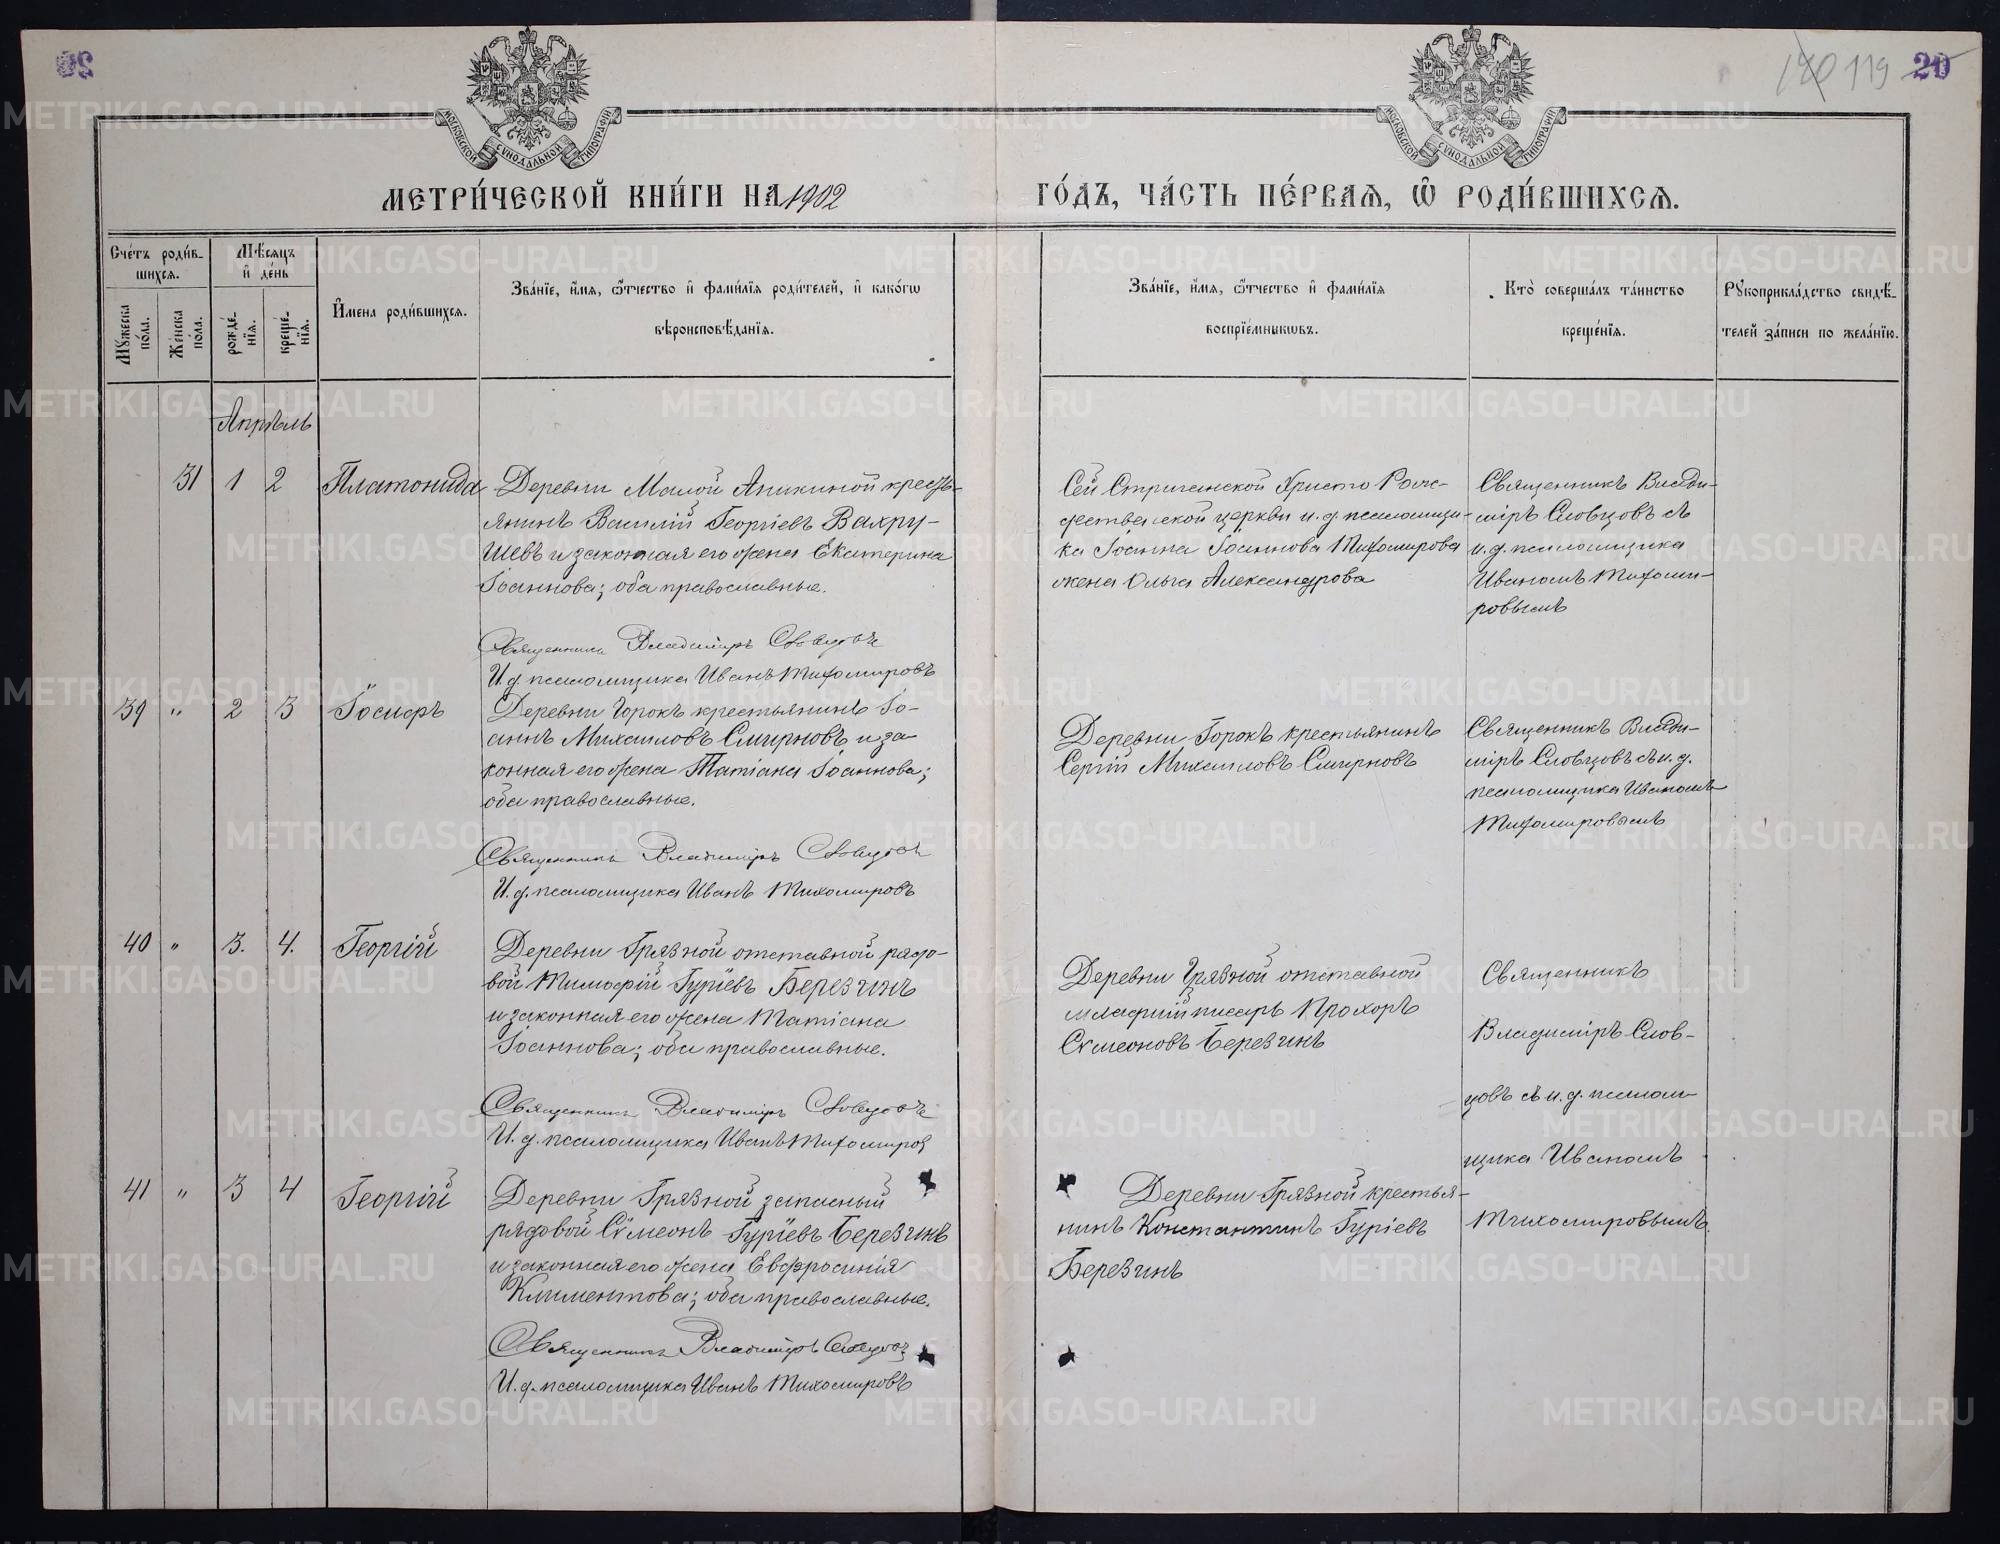 140 119 20
МОСКОВСКОЙ СѴНОДАЛЬНОЙ ТИПОГРАФІИ
МОСКОВСКОЙ СѴНОДАЛЬНОЙ ТИПОГРАФІИ
МЕТРИ́ЧЕСКОЙ КНИ́ГИ НА 1902
ГО́ДЪ, ЧА́СТЬ ПЕ́РВАЯ, Ѽ РОДИ́ВШИХСЯ.
Сче́тъ роди́в-
шихся.
Мѣ́сяцъ
и҆ де́нь
Мꙋ́жеска по́ла.
Же́нска по́ла.
рожде́-
нїя.
креще́-
нїя.
И҆мена роди́вшихся.
Зва́нїе, и҆́мя, ѻ҆́тчество и҆ фами́лїя роди́телей, и҆ како́гѡ
вѣроисповѣ́данїя.
Зва́нїе, и҆́мя, ѻ҆́тчество и҆ фами́лїя
воспрїе́мникѡвъ.
Кто̀ соверша́лъ та́инство
креще́нїя.
Рꙋкоприкла́дство свидѣ́-
телей за́писи по жела́нїю.
Апрѣль
31 1 2 Платонида
Деревни Малой Аникиной кресть-
янинъ Василій Георгіевъ Вахру-
шевъ и законная его жена Екатерина
Іоаннова; оба православные.
Священникъ Владиміръ Словцовъ
И. д. псаломщика Иванъ Тихомировъ
Сей Стриганской Христо Рож-
дественской церкви и. д. псаломщи-
ка Іоанна Іоаннова Тихомирова
жена Ольга Александрова
Священникъ Влади-
міръ Словцовъ съ
и. д. псаломщика
Иваномъ Тихоми-
ровымъ
39 " 2 3 Іосифъ
Деревни Горокъ крестьянинъ Іо-
аннъ Михаиловъ Смирновъ и за
конная его жена Татіана Іоаннова;
оба православные.
Священникъ Владиміръ Словцовъ
И. д. псаломщика Иванъ Тихомировъ
Деревни Горокъ крестьянинъ
Сергій Михаиловъ Смирновъ
Священникъ Влади-
міръ Словцовъ съ и. д.
псаломщика Иваномъ
Тихомировымъ
40 " 3. 4. Георгій
Деревни Грязной отставной рядо-
вой Тимофій Гуріевъ Березинъ
и законная его жена Татіана
Іоаннова; оба православные.
Священникъ Владиміръ Словцовъ
И. д. псаломщика Иванъ Тихомиров
Деревни Грязной отставной
младшій писарь Прохоръ
Сѵмеоновъ Березинъ
Священникъ
Владиміръ Слов-
цовъ съ и. д. псалом-
щика Иваномъ
Тихомировымъ.
41 " 3 4 Георгій
Деревни Грязной запасный
рядовой Сѵмеонъ Гуріевъ Березинъ
и законная его жена Евфросинія
Климентова; оба православные.
Священникъ Владиміръ Словцовъ
И. д. псаломщика Иванъ Тихомировъ
Деревни Грязной крестья-
нинъ Константинъ Гуріевъ
Березинъ
METRIKI.GASO-URAL.RU